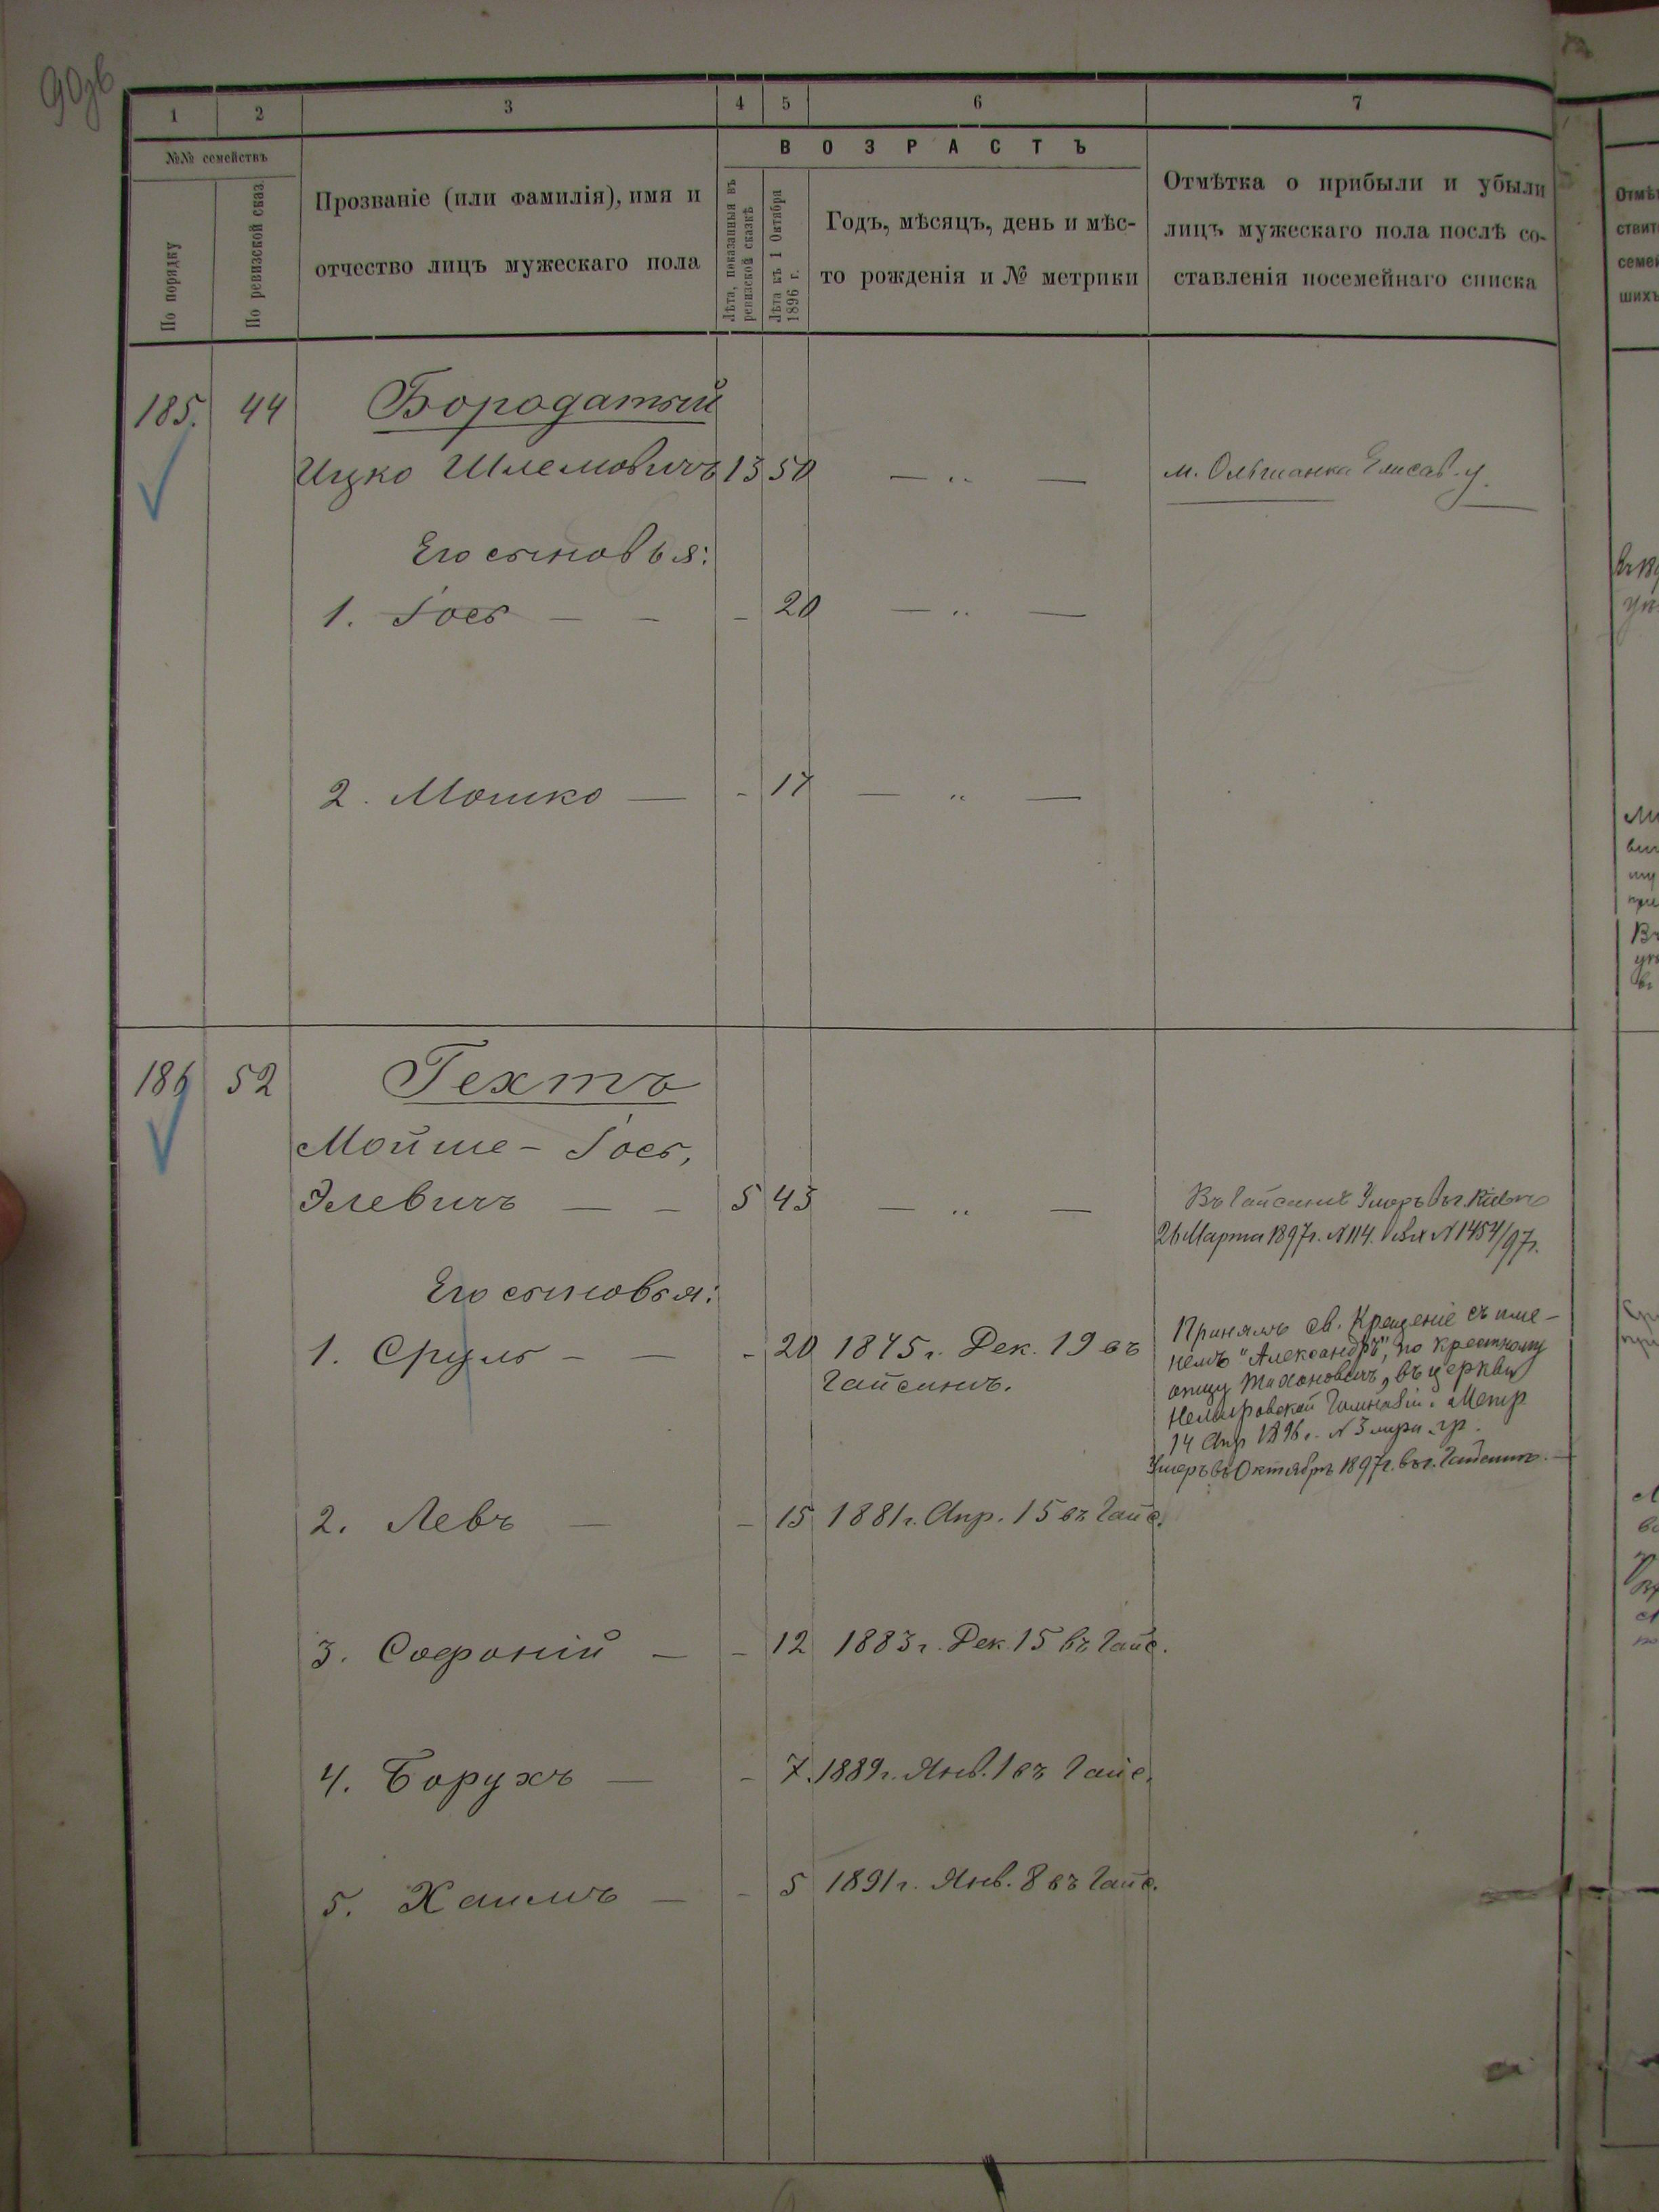 90зв
1 2 3 4 5 6 7
№№ семействъ
По порядку
По ревизской сказ.
Прозваніе (или фамилія), имя и
отчество лицъ мужескаго пола
ВОЗРАСТЪ
Лѣта, показанныя въ
ревизской сказкѣ
Лѣта къ 1 Октября
1896 г.
Годъ, мѣсяцъ, день и мѣс-
то рожденія и № метрики
Отмѣтка о прибыли и убыли
лицъ мужескаго пола послѣ со-
ставленія посемейнаго списка
185. 44 Бородатый
Ицко Шлемовичъ 13 50 — „ — м. Ольшанка Елисав. у.
Его сыновья:
1. Іосъ — — - 20 — „ —
2. Мошко — - 17 — „ —
186 52 Гехтъ
Мойше-Іосъ,
Элевичъ — — 5 43 — „ — Въ Гайсинѣ Умеръ въ г. Кіевѣ
26 Марта 1897 г. N 114. N 1454/97 г.
Его сыновья:
1. Сруль — — - 20 1875 г. Дек. 19 въ
Гайсинѣ.
Принялъ св. Крещеніе съ име-
немъ "Александръ", по крестному
отцу Тихоновичъ, въ церкви
Немировской Гимназіи. Метр
14 Апр 1896 г. N 3
Умеръ въ Октябрѣ 1897 г. въ г. Гайсинѣ.
2. Левъ — - 15 1881 г. Апр. 15 въ Гайс.
3. Софоній — - 12 1883 г. Дек. 15 въ Гайс.
4. Борухъ — - 7 1889 г. Янв. 1 въ Гайс.
5. Хаимъ — - 5 1891 г. Янв. 8 въ Гайс.